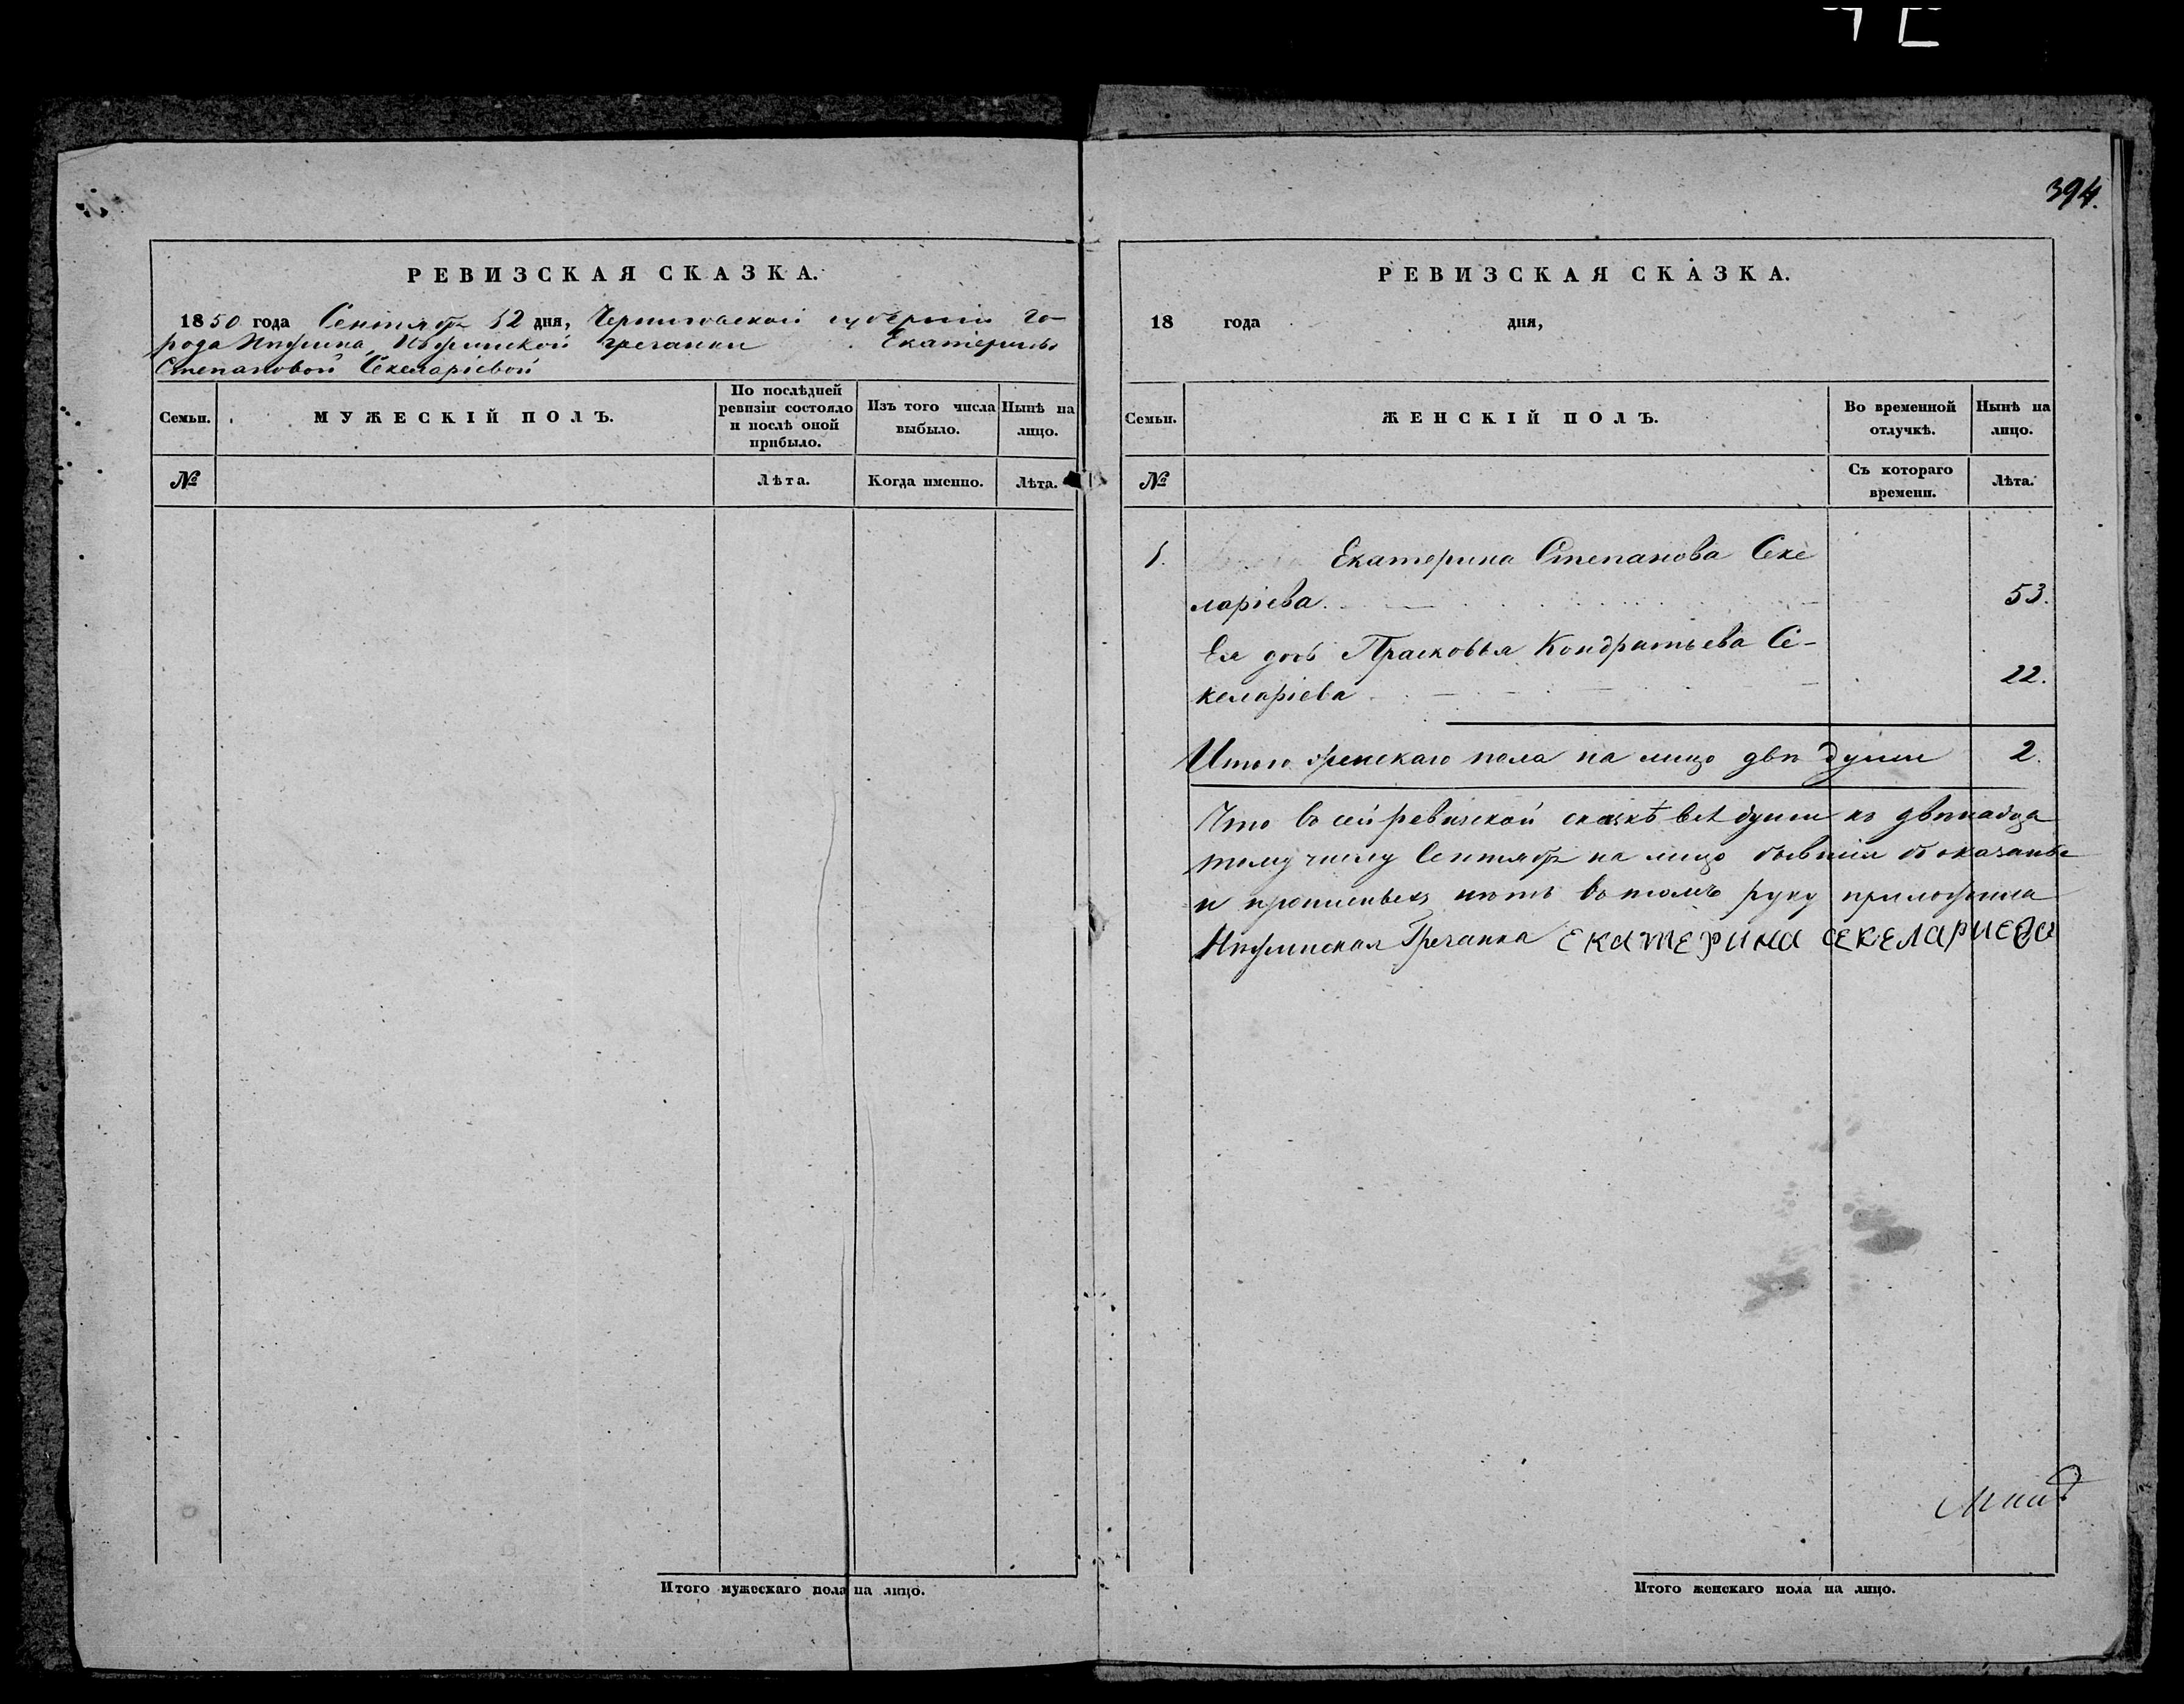 394.
РЕВИЗСКАЯ СКАЗКА.
1850 года Сентябр 12 дня, Черниговской губерніи го-
рода Нѣжина, Нѣжинской гречанки Екатерины
Степановой Секеларіевой
Семьи.
МУЖЕСКІЙ ПОЛЪ.
По послѣдней ревизіи состояло и послѣ оной прибыло.
Изъ того числа выбыло.
Нынѣ на лицо.
№
Лѣта.
Когда именно.
Лѣта.
Итого мужескаго пола на лицо.
РЕВИЗСКАЯ СКАЗКА.
18 года дня,
Семьи.
ЖЕНСКІЙ ПОЛЪ.
Во временной отлучкѣ.
Нынѣ на лицо.
№
Съ котораго времени.
Лѣта.
1. Екатерина Степанова Секе
ларіева. 53.
Ея дочь Прасковья Кондратьева Се-
келаріева 22.
Итого женскаго пола на лицо двѣ души 2.
Что въ сей ревизской сказкѣ всѣ души къ двѣнадца
тому числу Сентябр на лицо бывшія показаны
и прописныхъ нѣтъ въ томъ руку приложила
Нѣжинская Гречанка ЕКАТЕРИНА СЕКЕЛАРИЕВА
Итого женскаго пола на лицо.